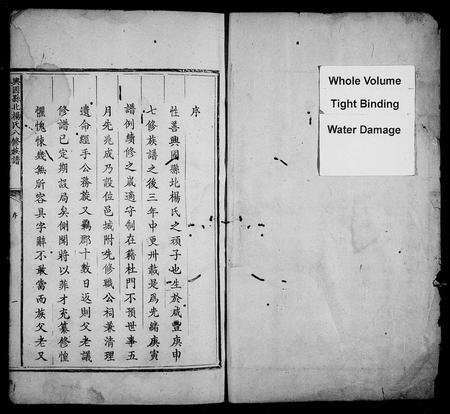 序
性善興國縣北楊氏之頑子也生於咸豐庚申
七修族譜之後三年中更卅載是為先緒庚寅
譜例續修之歲適守制在籍杜門不預世事五
月先兆成乃設位邑城附先修職公祠兼清理
遺命經手公務族又羁郡十數日返則父老議
修譜已定期設局矣側聞將以菲才充纂修惶
懼愧悚幾無所容具字辭不敢當而族父老又
興國縣北楊氏八修族譜
序
一
Whole Volume
Tight Binding
Water Damage